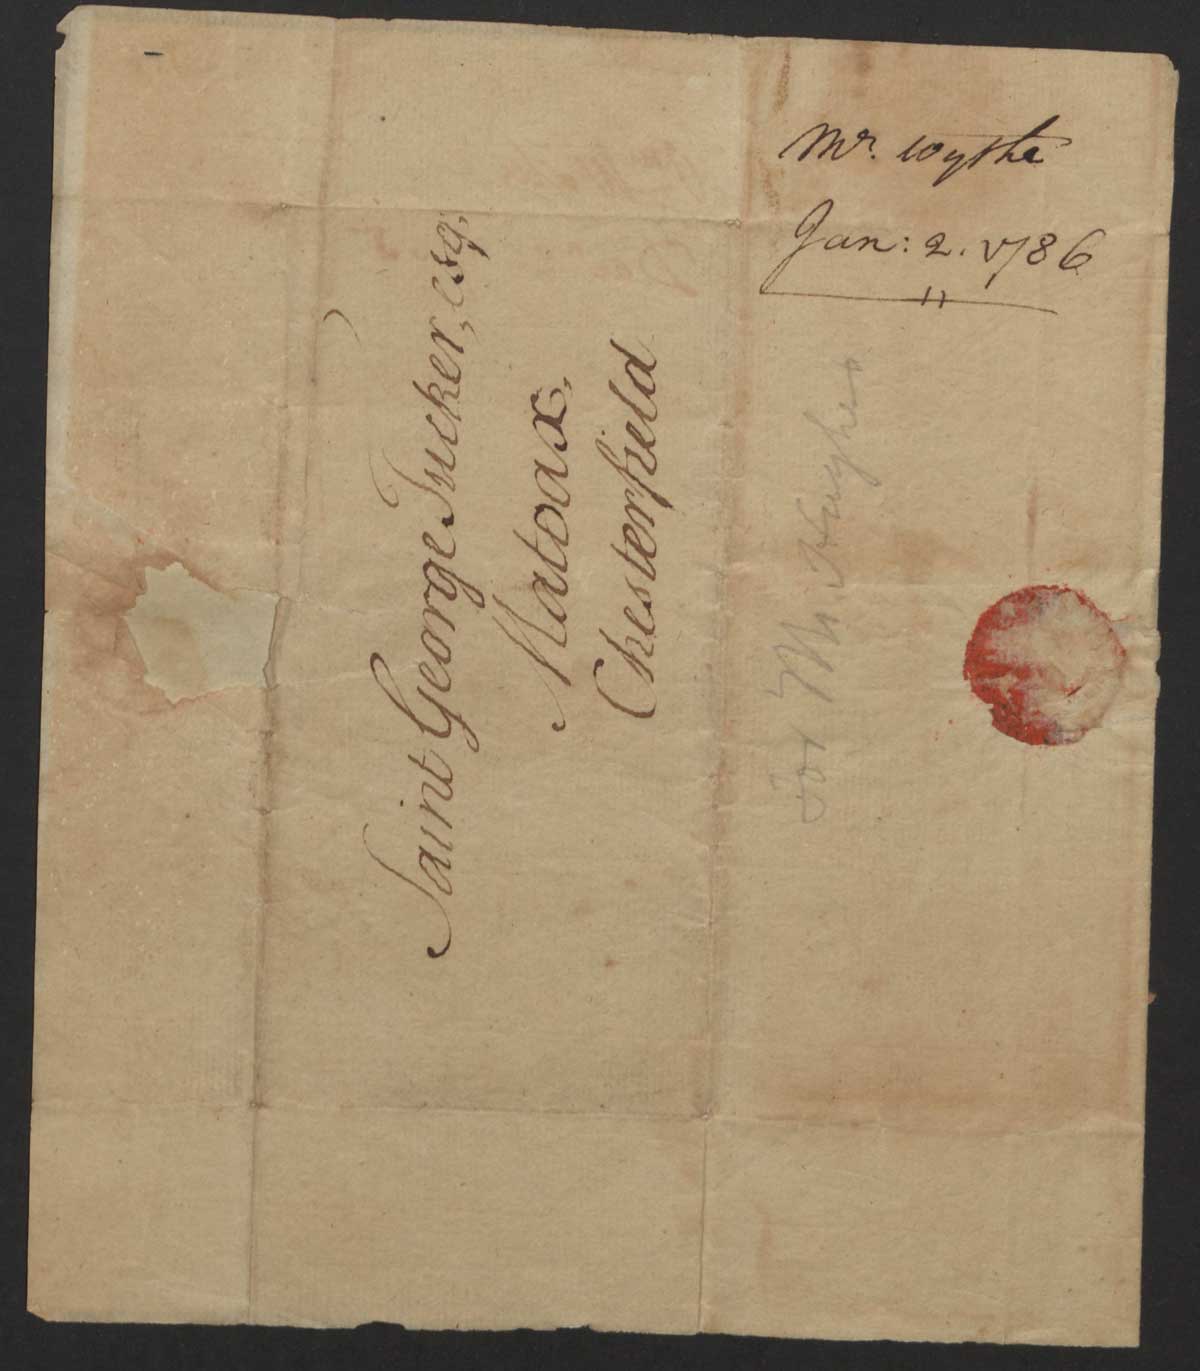 Mr. Wythe
Jan: 2. 1786
Saint George Tucker, esq.
Matoax,
Chesterfield
for Mr. Hughes